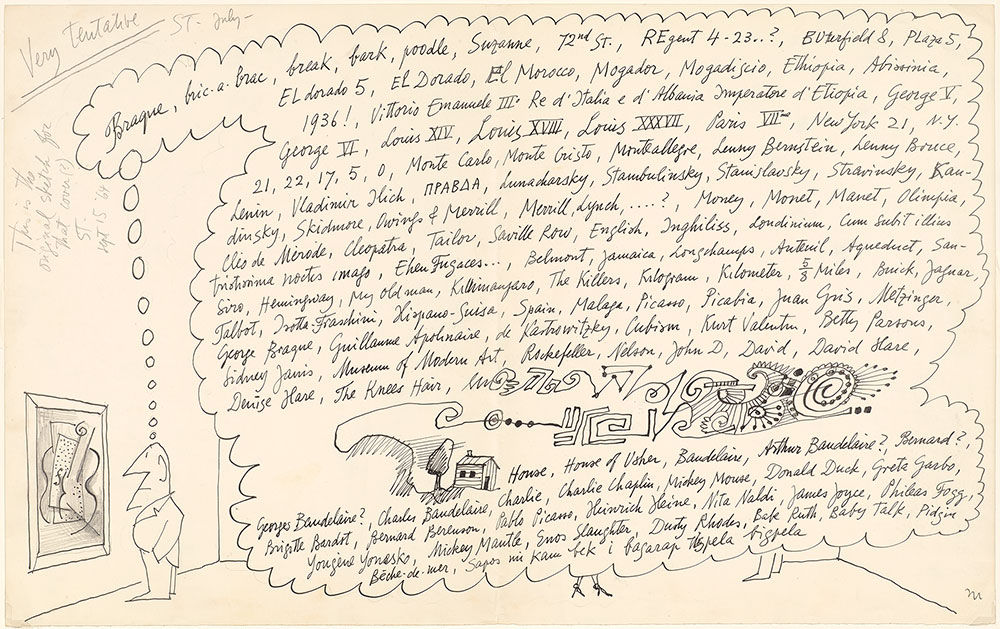 Very tentative
ST. July—
Braque, bric-a-brac, break, bark, poodle, Suzanne, 72nd St., REgent 4-23..?, BUterfield 8, PLaza 5,
ELdorado 5, EL Dorado, El Morocco, Mogador, Mogadiscio, Ethiopia, Abissinia,
1936!, Vittorio Emanuele III° Re d'Italia e d'Albania Imperatore d'Etiopia, George V,
George VI, Louis XIV, Louis XVIII, Louis XXXVII, Paris VIIme, New York 21, N.Y.
21, 22, 17, 5, 0, Monte Carlo, Monte Cristo, Monteallegre, Lenny Bernstein, Lenny Bruce,
Lenin, Vladimir Ilich, ПРАВДА, Lunacharsky, Stambulinsky, Stanislavsky, Stravinsky, Kan-
dinsky, Skidmore, Owings & Merrill, Merrill, Lynch.....?, Money, Monet, Manet, Olimpia,
Cleo de Mérode, Cleopatra, Tailor, Saville Row, English, Inghiliss, Londinium, Cum subit illius
tristissima noctis imago, Eheu Fugaces..., Belmont, Jamaica, Longchamps, Auteuil, Aqueduct, San-
Siro, Hemingway, My old man, Kilimanjaro, The Killers, Kilogram, Kilometer, 5/8 Miles, Buick, Jaguar,
Talbot, Isotta-Fraschini, Hispano-Suisa, Spain, Malaga, Picasso, Picabia, Juan Gris, Metzinger,
George Braque, Guillaume Apolinaire, de Kostrowitzky, Cubism, Kurt Valentin, Betty Parsons,
Sidney Janis, Museum of Modern Art, Rockefeller, Nelson, John D, David, David Hare,
Denise Hare, The Knees Hair,
House, House of Usher, Baudelaire, Arthur Baudelaire?, Bernard?,
Georges Baudelaire?, Charles Baudelaire, Charlie, Charlie Chaplin, Mickey Mouse, Donald Duck, Greta Garbo,
Brigitte Bardot, Bernard Berenson, Pablo Picasso, Heinrich Heine, Nita Naldi, James Joyce, Phileas Fogg,
Yougene Yonesko, Mickey Mantle, Enos Slaughter, Dusty Rhodes, Babe Ruth, Baby Talk, Pidgin
Bêche-de-mer, Sapos mi kam bek i bagarap tispela bigpela
This is the
original sketch for
that cover (?)
ST.
sept 15 '64